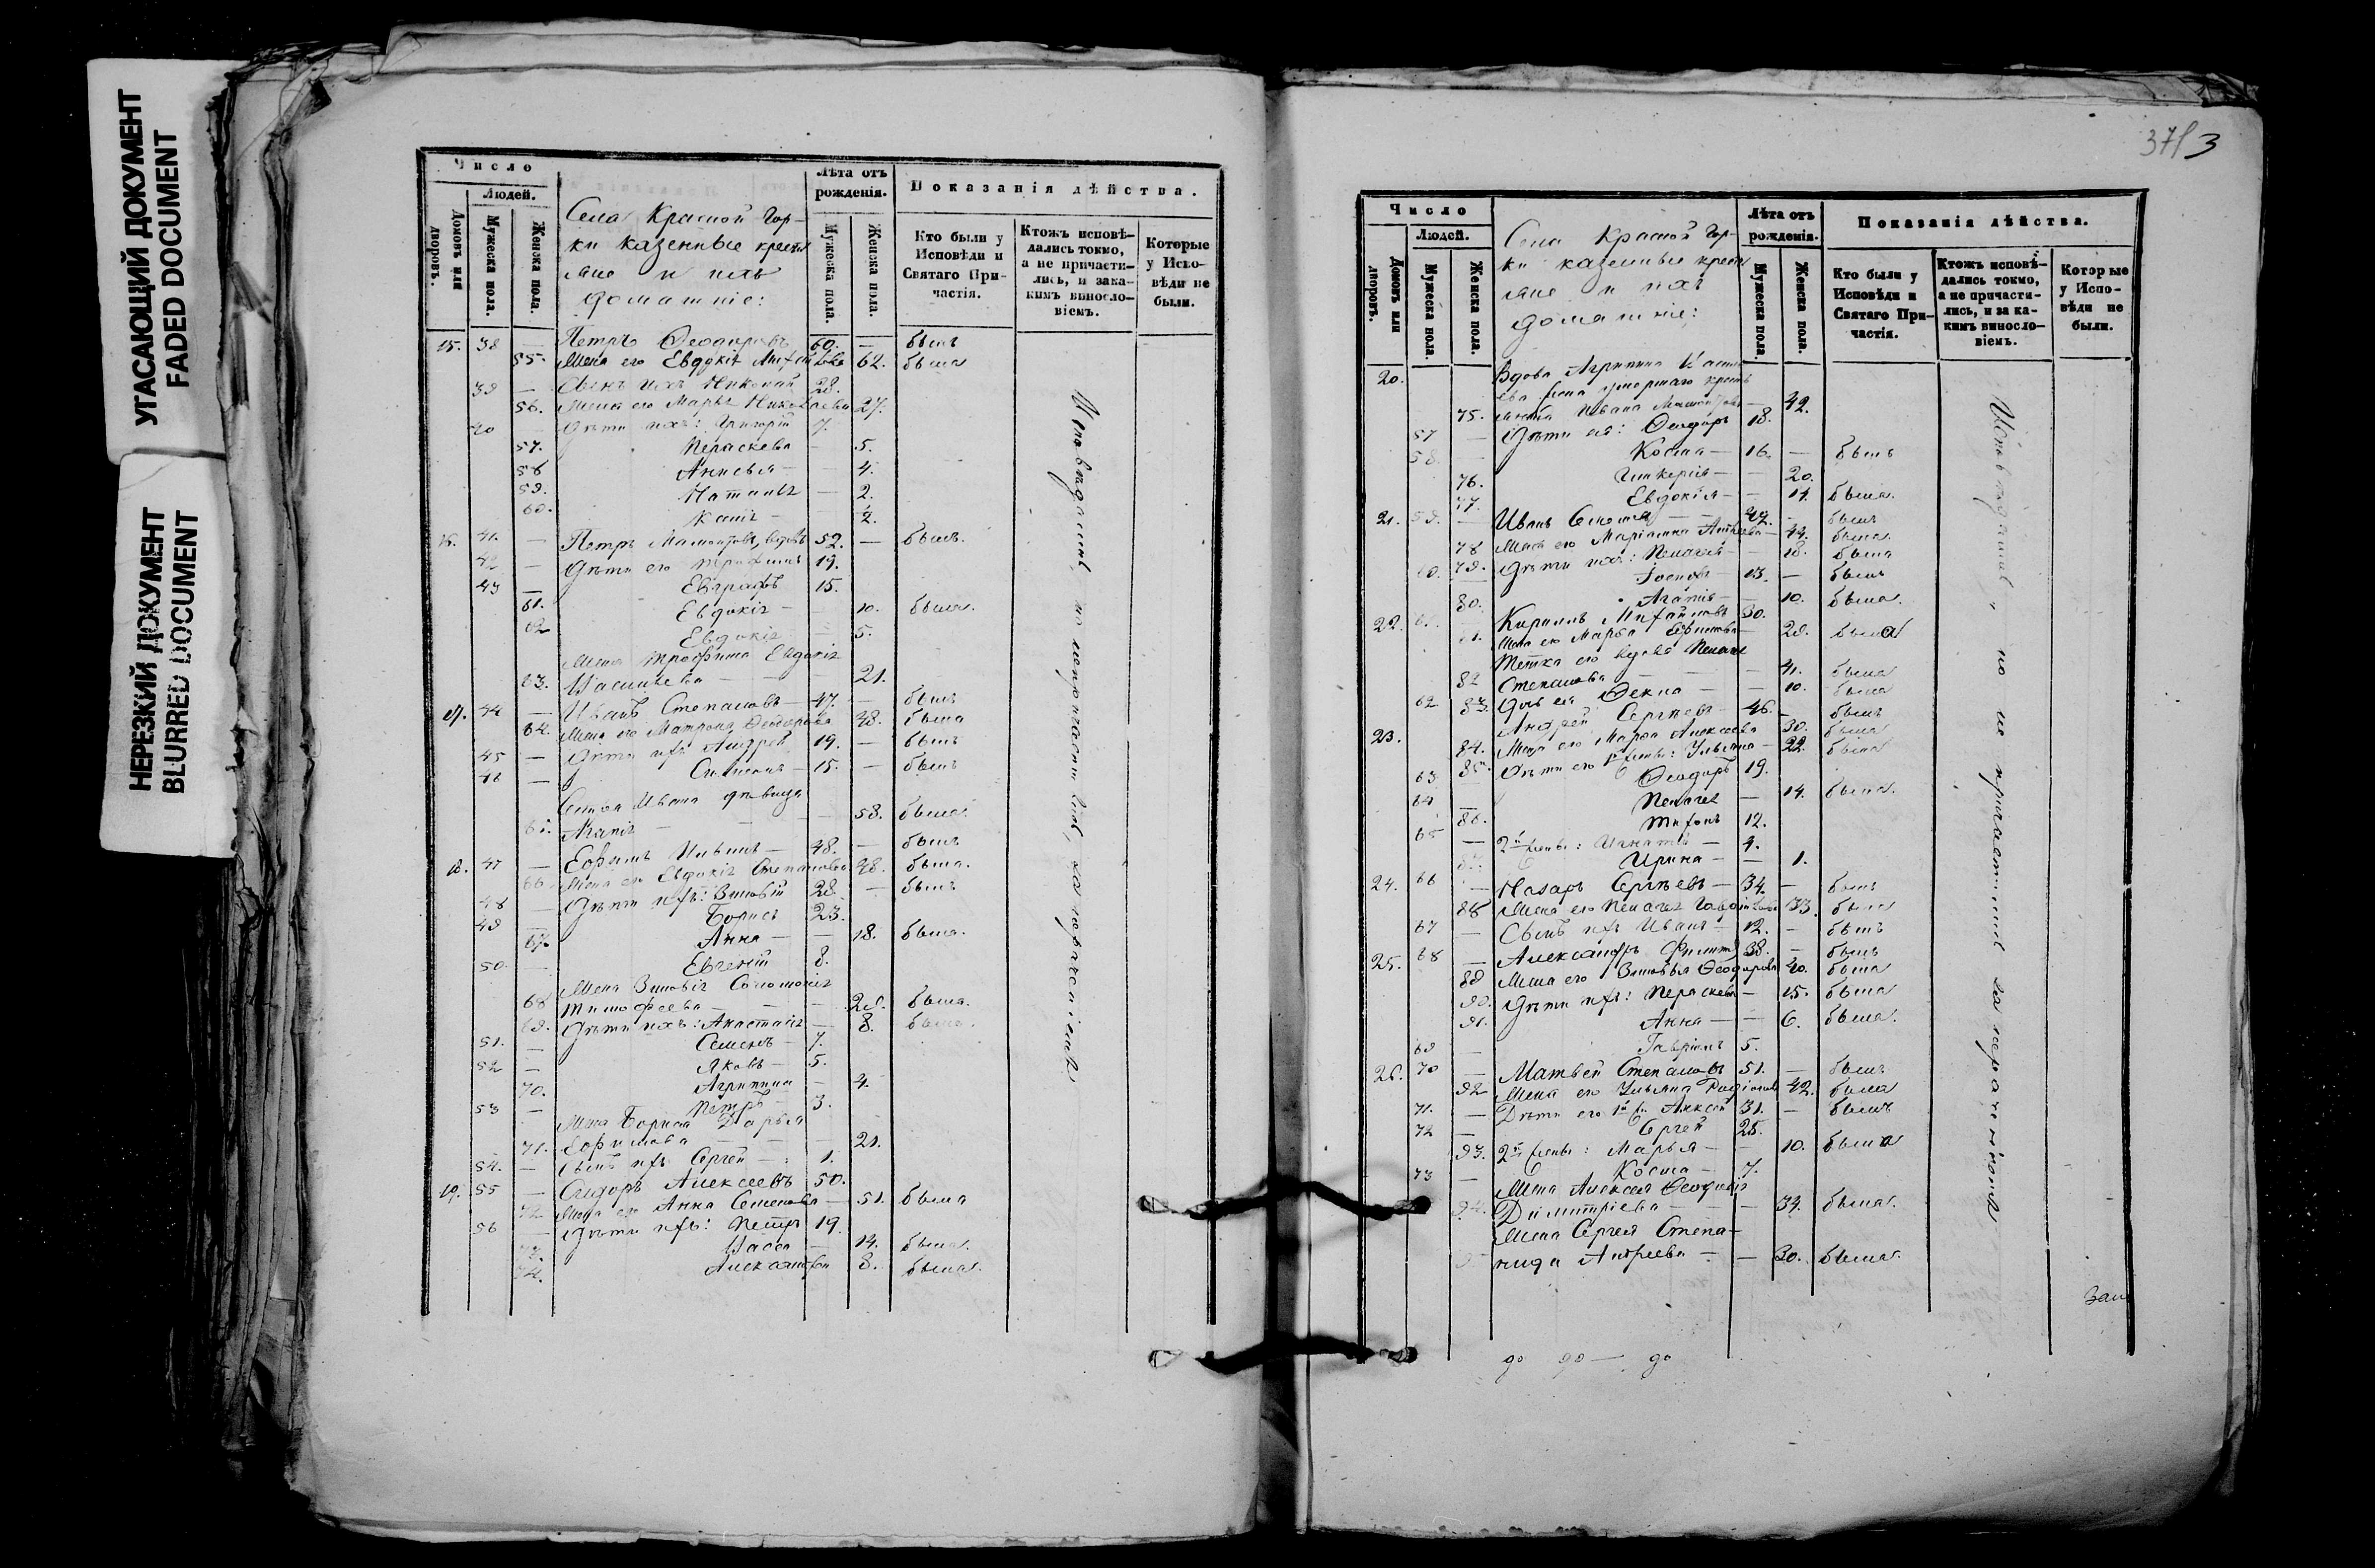 УГАСАЮЩИЙ ДОКУМЕНТ
FADED DOCUMENT
НЕРЕЗКИЙ ДОКУМЕНТ
BLURRED DOCUMENT
Число
Людей.
Домовъ или дворовъ.
Мужеска пола.
Женска пола.
Села Красной Гор-
ки казенные крестья
не и ихъ
домашніе:
Лѣта отъ рожденія.
Мужеска пола.
Женска пола.
Показанія дѣйства.
Кто были у Исповѣди и Святаго При-частія.
Ктожъ исповѣ-дались токмо, а не причасти-лись, и зака-кимъ виносло-віемъ.
Которые у Испо-вѣди не были.
15. 38 — Петръ Ѳеодоровъ 60. — былъ
55. Жена его Евдокія 62. была
39 — Сынъ ихъ Николай 28.
56. Жена его Марья Николаева 27.
40 Дѣти ихъ: Григорій 7.
57. Параскева — 5.
58 Анисья — 4.
59. Наталья — 2.
60. 2.
16. 41. — Петръ Мамонтовъ, вдовъ 52. — былъ.
42 — Дѣти его Трофимъ 19.
43 — Евграфъ 15.
61. Евдокія — 10. была.
62 Евдокія — 5.
Жена Трофима Евдокія
63. Васильева — 21.
17. 44 — Иванъ Степановъ — 47. — былъ
64. Жена его Матрона Ѳеодорова 48. была
45 — Дѣти ихъ Андрей 19. — былъ
46 — 15. — былъ
Сестра Ивана дѣвица
65. Агапія — — 58. была.
18. 47 — Ефимъ Ильинъ — 48. — былъ
66. Жена его Евдокія Степанова 48. была.
48 — Дѣти ихъ: Зиновій 28. — былъ
49 — Борисъ 23.
67. Анна — — 18. была.
50 — Евгеній 8.
Жена Зиновія Соломонія
68 Тимофеева — 28. была.
69. Дѣти ихъ: Анастасія — 8. была.
51. — Семенъ — 7.
52 — Яковъ — 5.
70. Агрипина — 4.
53 — Петръ — 3.
Жена Бориса Дарья
71. Ефимова — 21.
54. — Сынъ ихъ Сергей — 1.
19. 55 — Сидоръ Алексеевъ 50.
72 Жена его Анна Семенова — 51. была
56 — Дѣти ихъ: Петръ 19.
73. Васса — 14. была.
74. Александра 8. была.
Исповѣдались, но не причастились, за нераченіемъ
3713
Число
Людей.
Домовъ или дворовъ.
Мужеска пола.
Женска пола.
Села Красной Гор-
ки казенные крестья
не и ихъ
домашніе:
Лѣта отъ рожденія.
Мужеска пола.
Женска пола.
Показанія дѣйства.
Кто были у Исповѣди и Святаго При-частія.
Ктожъ исповѣ-дались токмо, а не причасти-лись, и за ка-кимъ виносло-віемъ.
Которые у Испо-вѣди не были.
20. Вдова Агрипина
ева жена умершаго кресть
75. янина Ивана Мамонтова — 42.
57 — Дѣти ея: Ѳеодоръ 18.
58. — Косма — 16. — былъ
76. Гликерія — — 20.
77. Евдокія — — 14. была.
21. 59. — Иванъ 42. — былъ
78 Жена его Маріамна — 44. была.
79. Дѣти ихъ: Пелагея — 18. была
60. — Іосифъ — 13. — былъ
80. Агапія — 10. была.
22. 61. — Кириллъ 30.
81. Жена его Марѳа — 29. была
Тетка его вдова Пелагея
82 Степанова — — 41. была
83. Дочь ея Ѳекла — — 10. была
23. 62 Андрей Сергѣевъ — 46. — былъ
84. Жена его Марѳа Алексеева 30. была
85. Дѣти его 1й жены: Ульяна — 22. была
63 Ѳеодоръ 19.
64 — Пелагея — 14. была.
86. Тихонъ 12.
65 — 2й жены: Игнатій — 4.
87. Ирина — — 1.
24. 66 — Назаръ Сергѣевъ — 34. — былъ
88 Жена его Пелагея 33. была
67 — Сынъ ихъ Иванъ — 12. — былъ
25. 68 — Александръ 38. — былъ
89 Жена его Зиновья Ѳеодорова 40. была
90. Дѣти ихъ: Параскева — 15. была
91. Анна — — 6. была.
69 — Гавріилъ 5.
26. 70 — Матвей Степановъ 51. — былъ
92 Жена его Ульяна Родіонова 42. была
71. — Дѣти его 1й ж. Алексей 31. — былъ
72 — Сергей 25.
93. 2й жены: Марья — 10. была
73 — Косма — 7.
Жена Алексея Ѳеодосія
94. Димитріева — — 34. была.
Жена Сергея Степа-
нида Андреева — — 30. была.
Исповѣдались, но не причастились за нераченіемъ
до до — до